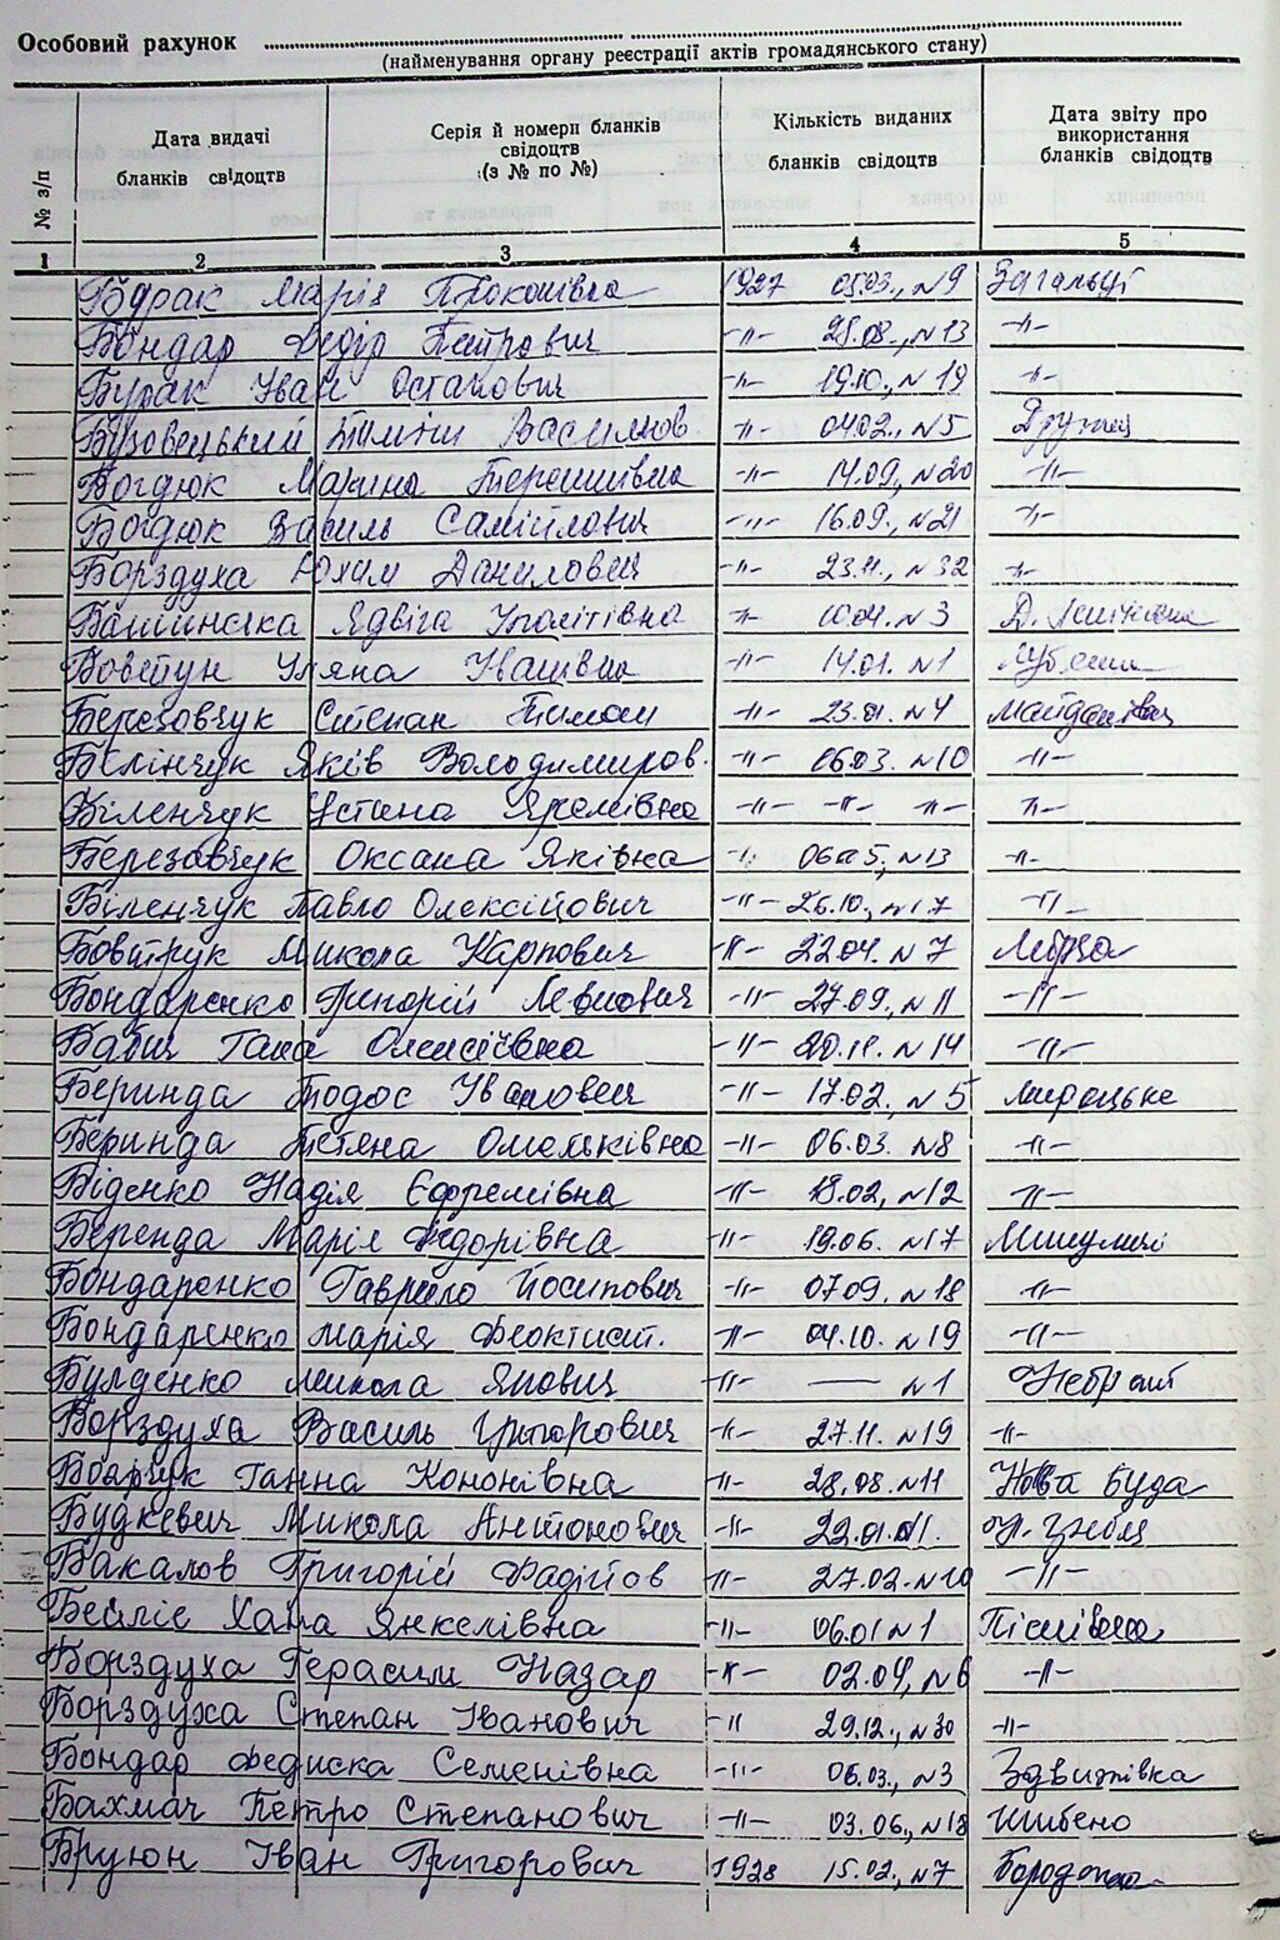 Особовий рахунок
(найменування органу реєстрації актів громадянського стану)
№ з/п
Дата видачі
бланків свідоцтв
Серія й номери бланків
свідоцтв
(з № по №)
Кількість виданих
бланків свідоцтв
Дата звіту про
використання
бланків свідоцтв
1 2 3 4 5
Марія Прокопівна 1927 05.03., №9 Загальці
Бондар Федір Петрович -"- 25.08., №13 -"-
Бурак Іван Остапович -"- 19.10., №19 -"-
Бузовецький Василов. -"- 04.02., №5 Дружня
Богдюк Марина Терешківна -"- 14.09., №20 -"-
Богдюк Василь Самійлович -"- 16.09., №21 -"-
Борздуха Юхим Данилович -"- 23.11., №32 -"-
Ядвіга Іполітівна -"- 10.04. №3
Бовтун Уляна Іванівна -"- 14.01. №1
Березовчук Степан Тимош -"- 23.01. №4 Майданівка
Білінчук Яків Володимиров. -"- 06.03. №10 -"-
Біленчук Устина Яремівна -"- -"- -"- -"-
Березовчук Оксана Яківна -"- 06.05., №13 -"-
Біленчук Павло Олексійович -"- 26.10., №17 -"-
Бовтрук Микола Карпович -"- 22.04. №7
Бондаренко Григорій Левкович -"- 27.09., №11 -"-
Бабич Ганна Олексіївна -"- 20.11. №14 -"-
Беринда Тодос Іванович -"- 17.02., №5 Мироцьке
Беринда Тетяна Омельківна -"- 06.03. №8 -"-
Біденко Надія Єфремівна -"- 18.02, №12 -"-
Беренда Марія Федорівна -"- 19.06. №17 Микуличі
Бондаренко Гаврило Йосипович -"- 07.09. №18 -"-
Бондаренко Марія Феоктист. -"- 04.10. №19 -"-
Булденко Микола Якович -"- — №1 Небрат
Борздуха Василь Григорович -"- 27.11. №19 -"-
Боярчук Ганна Кононівна -"- 28.08. №11 Нова Буда
Будкевич Микола Антонович -"- 22.01. №1. Н. Гребля
Бакалов Григорій Фадійов -"- 27.02. №10 -"-
Бейліс Хана Янкелівна -"- 06.01 №1 Пісківка
Борздуха Герасим Назар -"- 02.04, №6 -"-
Борздуха Степан Іванович -"- 29.12., №30 -"-
Бондар Федиска Семенівна -"- 06.03., №3 Здвижівка
Бахмач Петро Степанович -"- 03.06., №18 Шибено
Бруюн Іван Григорович 1928 15.02., №7 Бородянка